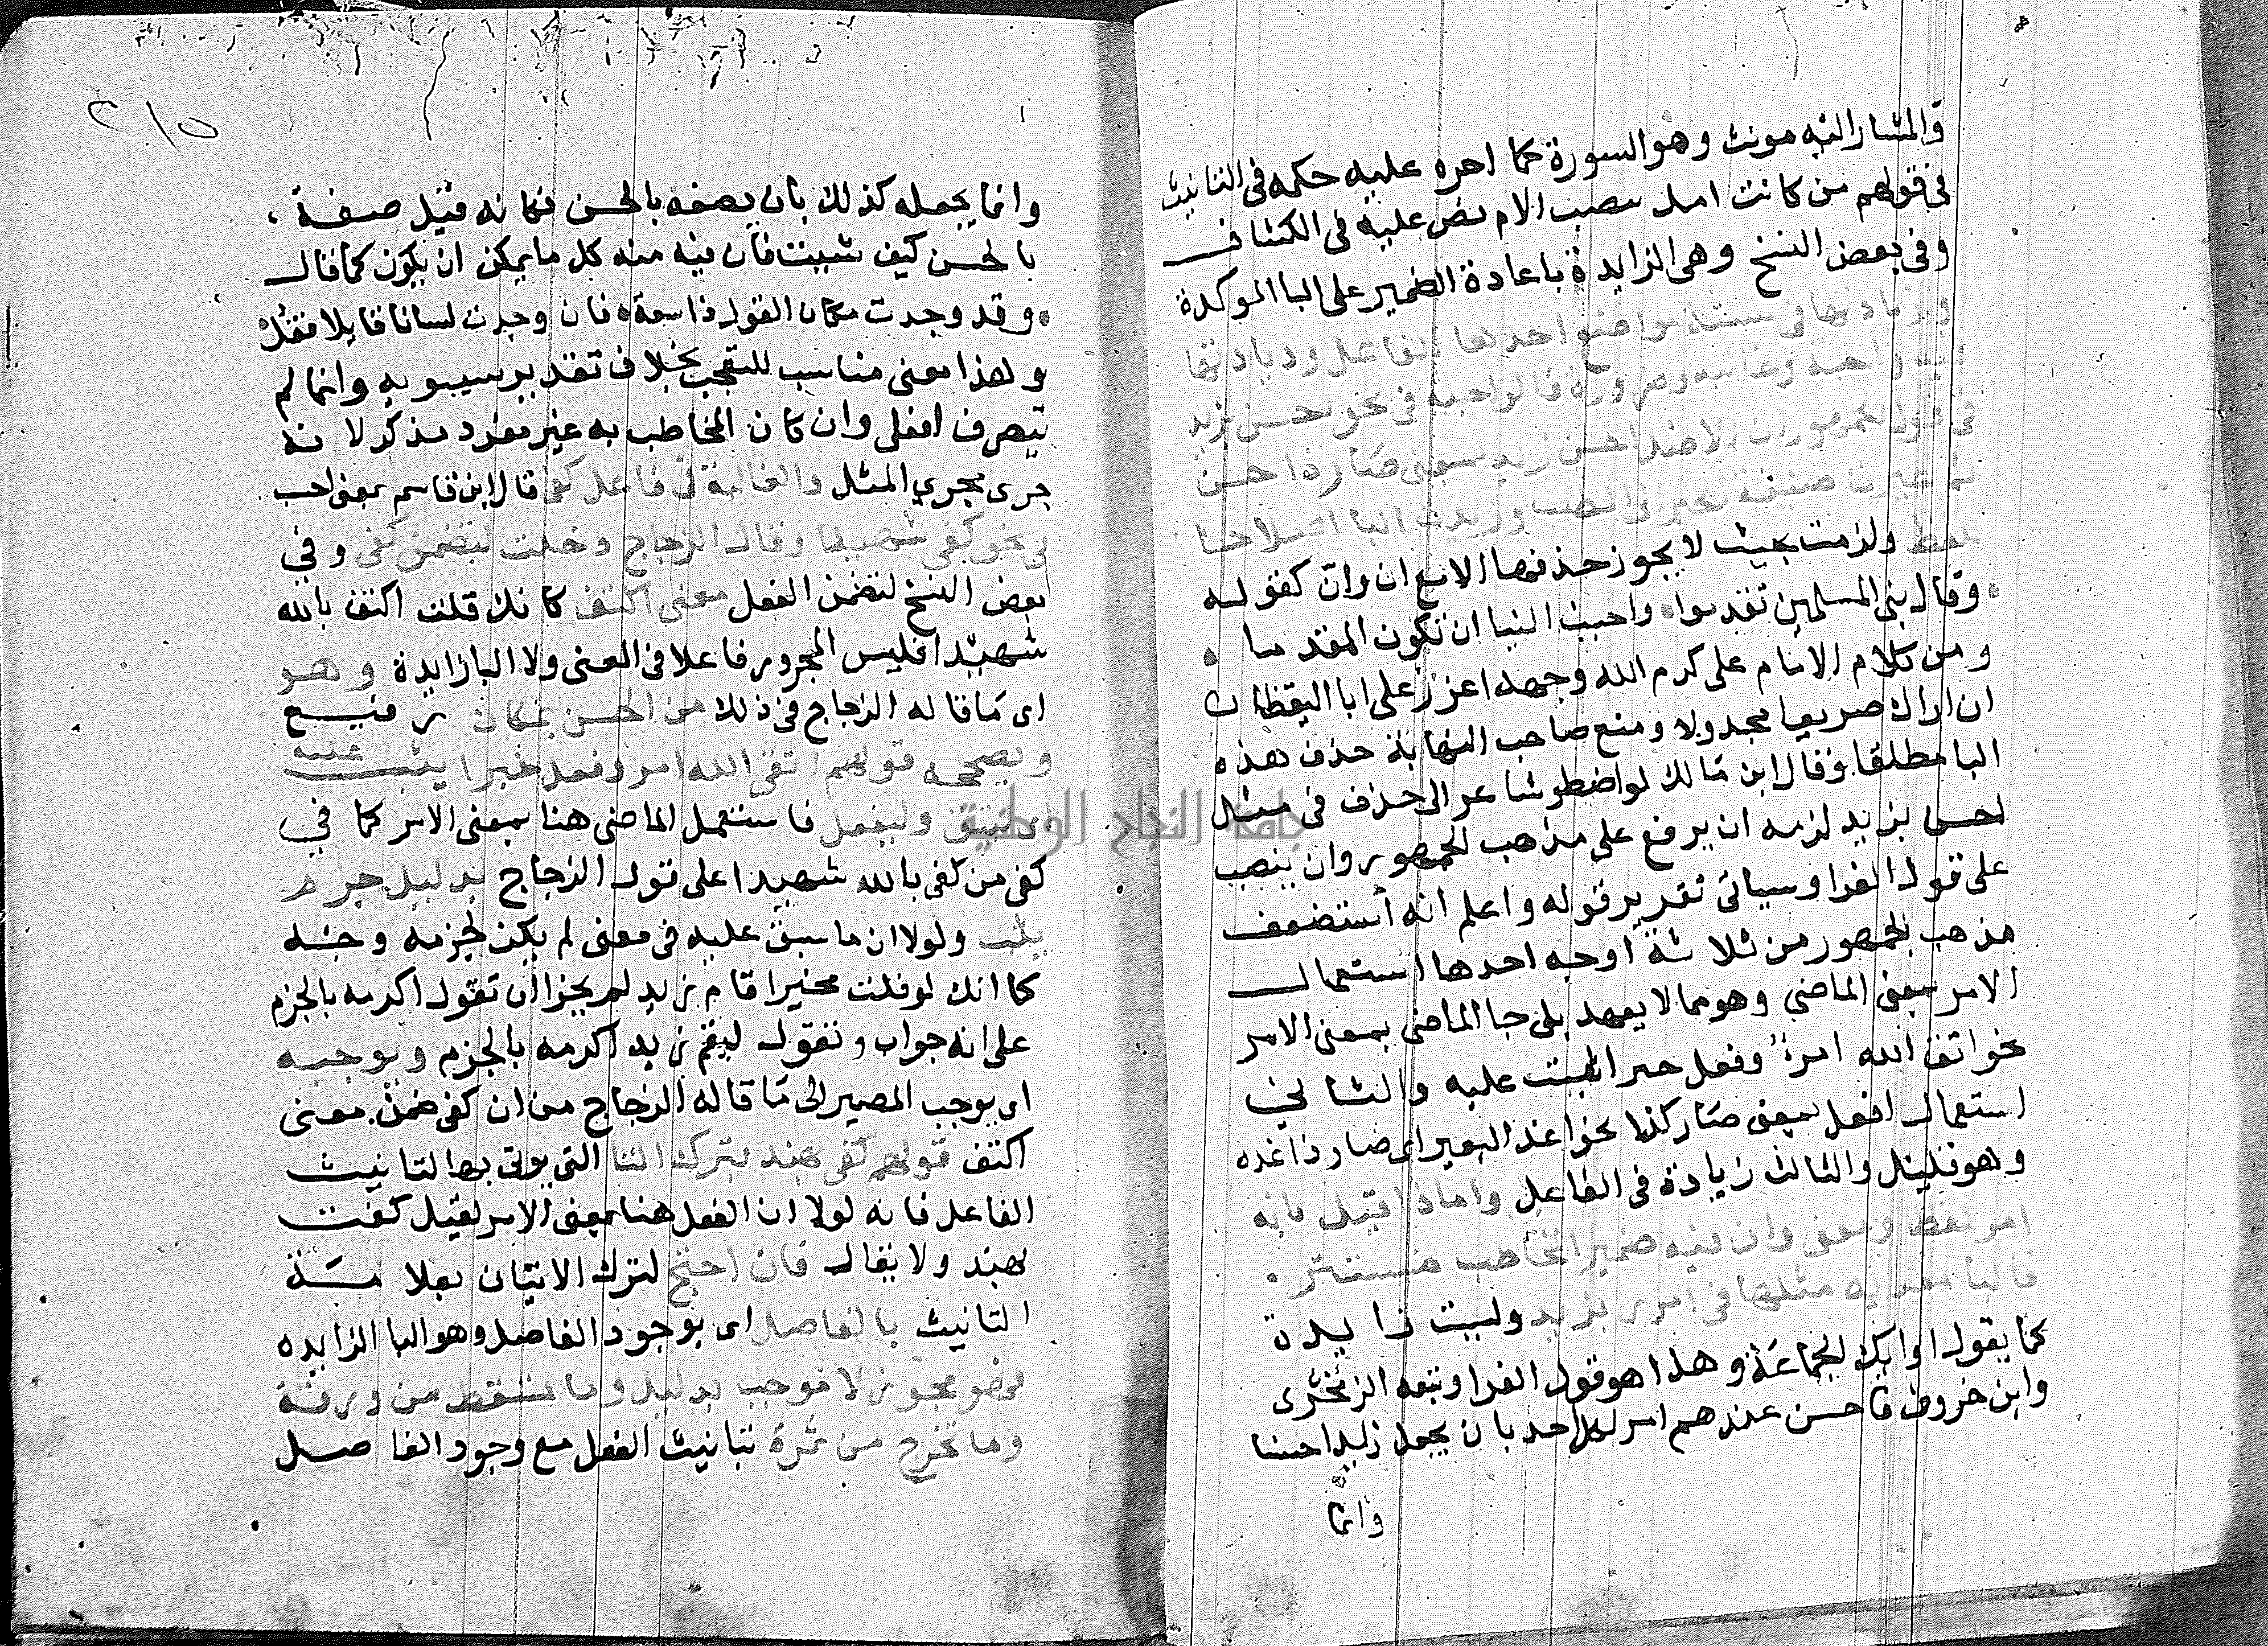 والمشار اليه مونث وهو السورة كما اجره عليه حكمه في التانيث
في قولهم من كانت امك بنصب الام نص عليه في الكشاف
وفي بعض النسخ وهي الزايدة باعادة الضمير على البا الموكدة
وزيادتها في ستة مواضع احدها الفاعل وزيادتها
فيه واجبة وغالبة وضرورة فالواجبة في نحو احسن بزيد
في قول الجمهور ان الاصل احسن زيد بمعنى صار ذا حسن
ثم غيرت صيغة الخبر الى الطلب وزيدت البا اصلاحا
للفظ ولزمت بحيث لا يجوز حذفها الا مع ان وانّ كقوله
وقال نبى المسلمين تقدموا واحبب الينا ان تكون المقدما
ومن كلام الامام على كرم الله وجهه اعزز على ابا اليقظان
ان اراك صريعا مجدولا ومنع صاحب النهاية حذف هذه
البا مطلقا وقال ابن مالك لو اضطر شاعر الى حذف في مثل
احسن بزيد لزمه ان يرفع على مذهب الجمهور وان ينصب
على قول الفرا وسياتى تقدير قوله واعلم انه استضعف
مذهب الجمهور من ثلاثة اوجه احدها استعمال
الامر بمعنى الماضى وهو مما لا يعهد بل جا الماضى بمعنى الامر
نحو اتقى الله امرؤ وفعل خيرا يثب عليه والثاني
استعمال افعل بمعنى صار كذا نحو اغد البعير اى صار ذا غده
وهو قليل والثالث زيادة في الفاعل واما اذا قيل بانه
امر لفظا ومعنى وان فيه ضمير المخاطب مستتر
فالبا معدية مثلها في امرر بزيد وليست زايدة
كما يقول اوليك الجماعة وهذا هو قول الفرا وتبعه الزمخشرى
وابن خروف فاحسن عندهم امر لكل احد بان يجعل زيدا حسنا
وانما
٢١٥
وانما يجعله كذلك بان يصفه بالحسن فكانه قيل صفة
بالحسن كيف شيت فان فيه منه كل ما يمكن ان يكون كما قال
وقد وجدت مكان القول ذا سعة فان وجدت لسانا قايلا فقل
وهذا معنى مناسب للتعجب بخلاف تقدير سيبويه وانما لم
يتصرف افعل وان كان المخاطب به غير مفرد مذكر لانه
جرى مجرى المثل والغالبة في فاعل كفى قال ابن قاسم بمعنى احب
في نحو كفى شهيدا وقال الزجاج دخلت لتضمن كفى وفي
بعض النسخ لتضمن الفعل معنى اكتف كانك قلت اكتف بالله
شهيدا فليس المجرور فاعلا في المعنى ولا البا زايدة وهو
اى ما قاله الزجاج في ذلك من الحسن بمكان رفيع
ويصححه قولهم اتقى الله امرؤ فعل خيرا يثب عليه
اى ليتق وليفعل فاستعمل الماضى هنا بمعنى الامر كما في
كفى من كفى بالله شهيدا على قول الزجاج بدليل جزم
يثب ولولا ان ما سبق عليه في معنى لم يكن لجزمه وجه
كما انك لو قلت مخبرا قام زيد لم يجز ان تقول اكرمه بالجزم
على انه جواب وتقول ليقم زيد اكرمه بالجزم ويوجبه
اى يوجب المصير الى ما قاله الزجاج من ان كفى ضمن معنى
اكتف قولهم كفى بهند بترك التا التى يوتى بها لتانيث
الفاعل فانه لولا ان الفعل هنا بمعنى الامر لقيل كفت
بهند ولا يقال فان احتج لترك الاتيان بعلامة
التانيث بالفاصل اى بوجود الفاصل وهو البا الزايده
فهو مجوز لا موجب بدليل وما تسقط من ورقة
وما تخرج من ثمرة بتانيث الفعل مع وجود الفاصل
جامعة النجاح الوطنية